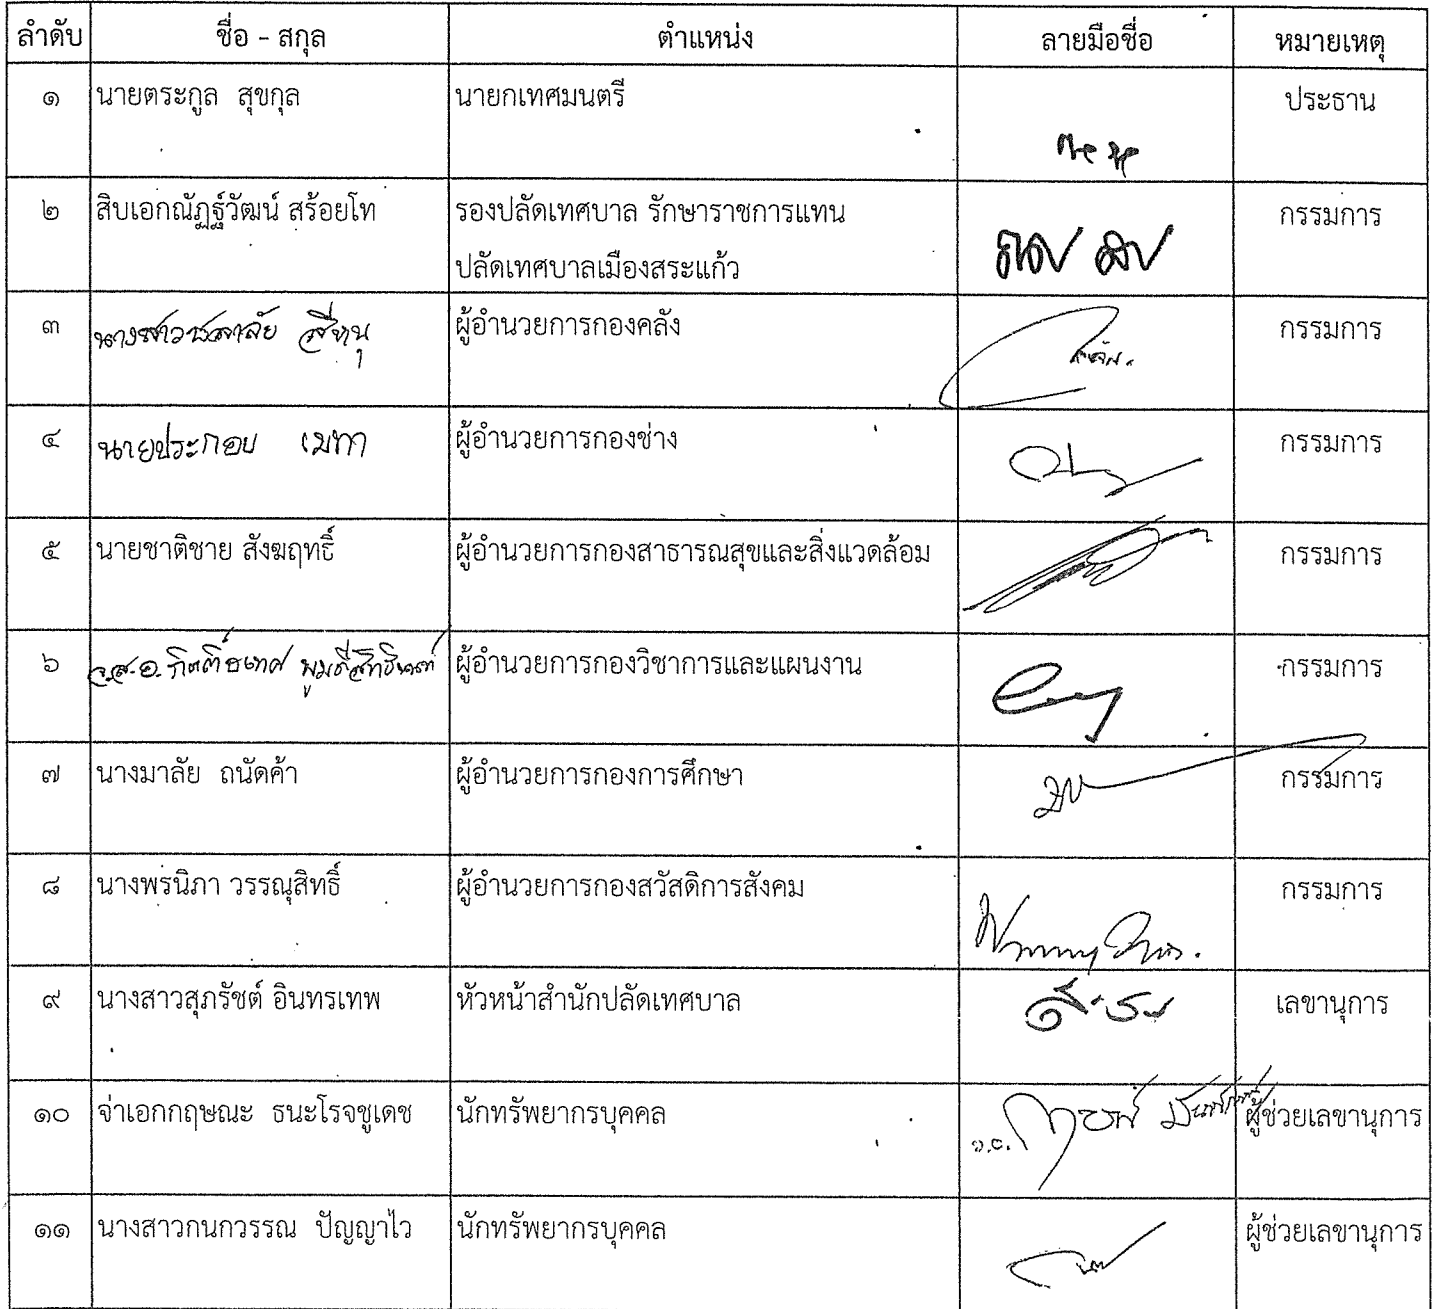 ลำดับ ชื่อ - สกุล ตำแหน่ง ลายมือชื่อ หมายเหตุ
๑ นายตระกูล สุขกุล นายกเทศมนตรี ประธาน
๒ สิบเอกณัฏฐ์วัฒน์ สร้อยโท รองปลัดเทศบาล รักษาราชการแทน กรรมการ
ปลัดเทศบาลเมืองสระแก้ว
๓ นางสาวชลาลัย สีหนุ ผู้อำนวยการกองคลัง กรรมการ
๔ นายประกอบ เมฑา ผู้อำนวยการกองช่าง กรรมการ
๕ นายชาติชาย สังฆฤทธิ์ ผู้อำนวยการกองสาธารณสุขและสิ่งแวดล้อม กรรมการ
๖ จ.ส.อ. ผู้อำนวยการกองวิชาการและแผนงาน กรรมการ
๗ นางมาลัย ถนัดค้า ผู้อำนวยการกองการศึกษา กรรมการ
๘ นางพรนิภา วรรณุสิทธิ์ ผู้อำนวยการกองสวัสดิการสังคม กรรมการ
๙ นางสาวสุภรัชต์ อินทรเทพ หัวหน้าสำนักปลัดเทศบาล เลขานุการ
๑๐ จ่าเอกกฤษณะ ธนะโรจชูเดช นักทรัพยากรบุคคล ผู้ช่วยเลขานุการ
๑๑ นางสาวกนกวรรณ ปัญญาไว นักทรัพยากรบุคคล ผู้ช่วยเลขานุการ